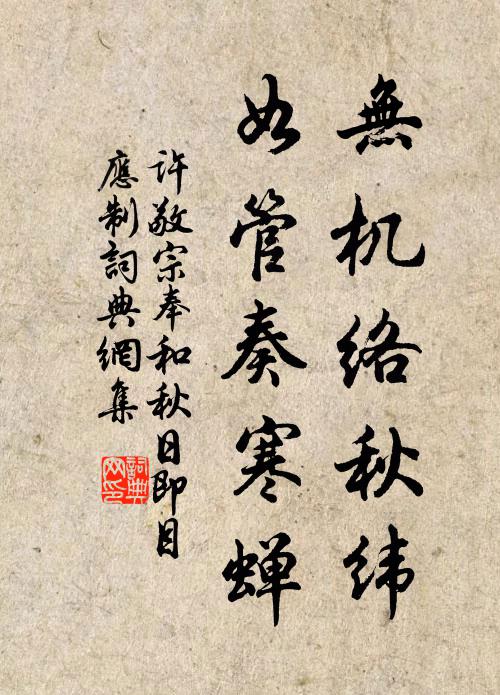 無机络秋纬
如管奏寒蝉
許敬宗奉和秋日即目
應制詞典網集
詞典网印